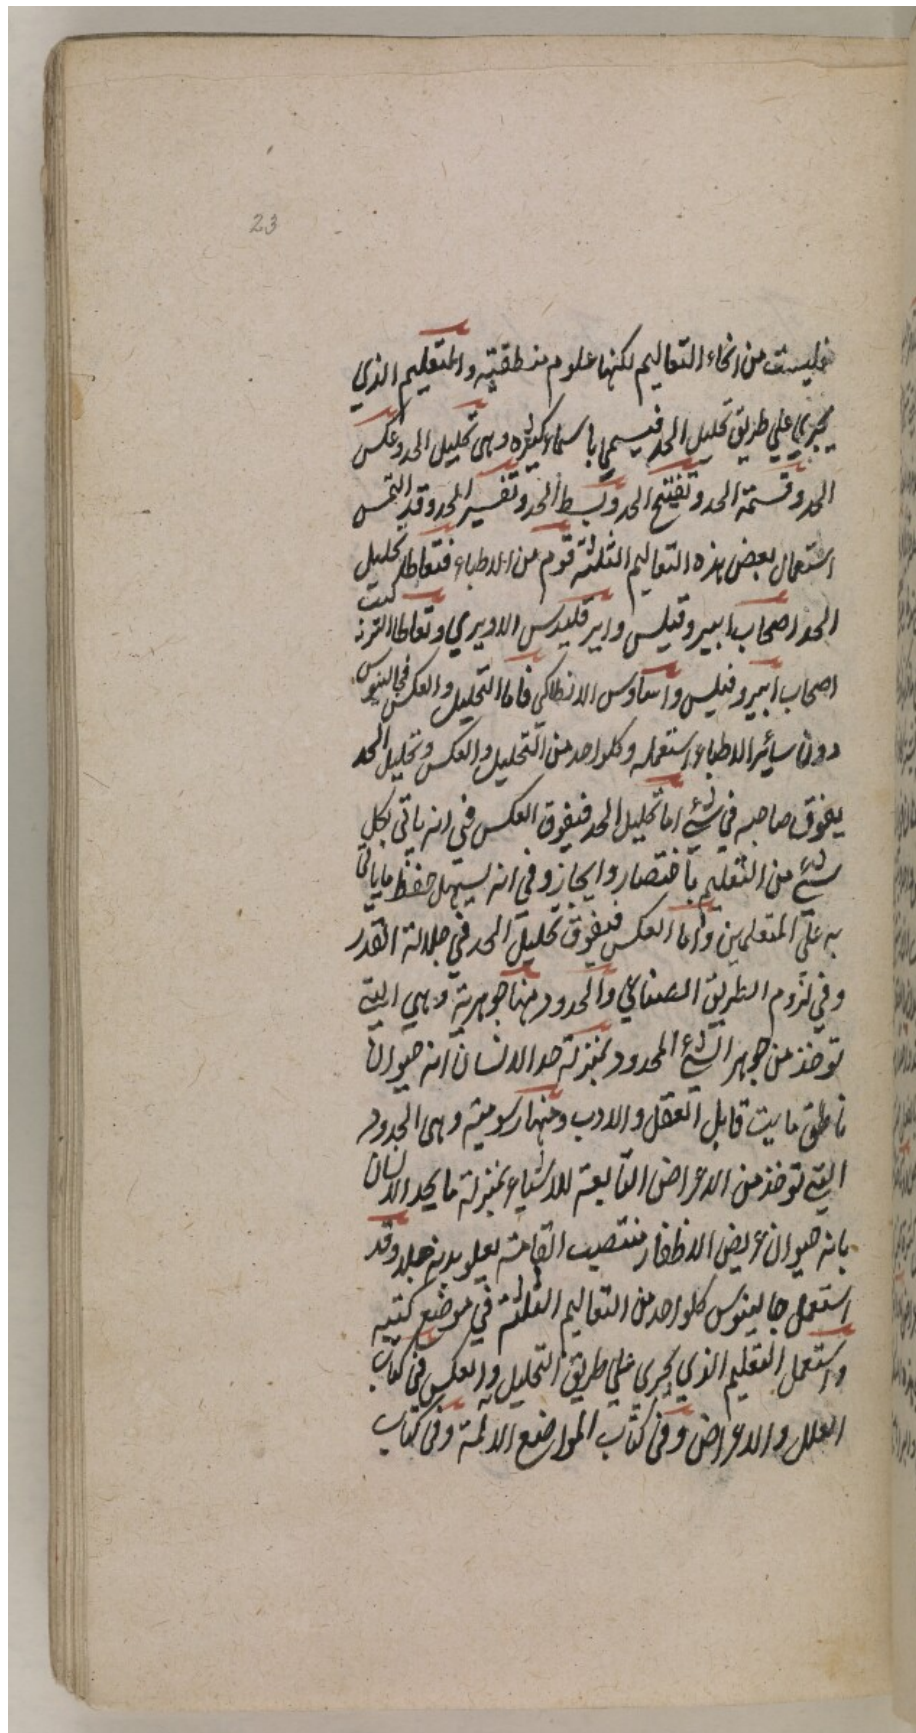 23
فليست من انحاء التعاليم لكنها علوم منطقية والتعليم الذي
يجري علي طريق تحليل الحد فيسمي باسماء كثيره وهي تحليل الحد وعكس
الحد وقسمة الحد وتفتيح الحد وبسط الحد وتفسير الحد وقد التمس
استعمال بعض هذه التعاليم الثلثة قوم من الاطباء فتعاطا تحليل
الحد اصحاب ايروفيلس وايرقليدس الاويري وتعاطا التركيب
اصحاب ايروفيلس الانطاكي فاما التحليل والعكس فجالينوس
دون سائر الاطباء استعمله وكلواحد من التحليل والعكس وتحليل الحد
يفوق صاحبه في شئ اما تحليل الحد فيفوق العكس في انه ياتي بكل
شئ من التعليم باختصار وايجاز وفي انه يسهل حفظ ما ياتي
به علي المتعلمين واما العكس فيفوق تحليل الحد في جلالة القدر
وفي لزوم الطريق الصناعي والحدود منها جوهرية وهي التي
توخذ من جوهر الشئ المحدود بمنزلة حد الانسان انه حيوان
ناطق مايت قابل العقل والادب ومنها رسومية وهي الحدود
التي توخذ من الاعراض التابعة للاشياء بمنزلة ما يحد الانسان
بانه حيوان عريض الاظفار منتصب القامة يعلو بدنه جلد وقد
استعمل جالينوس كلواحد من التعاليم الثلثة في موضع كتبه
واستعمل التعليم الذي يجري علي طريق التحليل والعكس في كتاب
العلل والاعراض وفي كتاب المواضع الالمة وفي كتاب